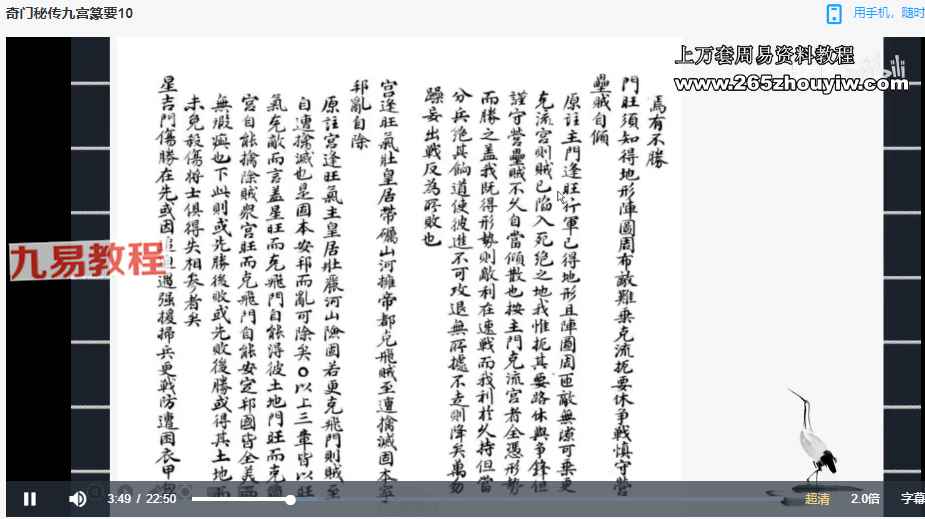 奇门秘传九宫篆要10
用手机，随时
上万套周易资料教程
www.265zhouyiw.com
焉有不勝
門旺須知得地形陣圖周布敵難乗克流扼要休争戦慎守營
壘賊自傾
原註主門逢旺行軍已得地形且陣圖周匝敵無隙可乗更
克流宫則賊已陷入死絶之地我惟扼其要路休與争鋒但
謹守營壘賊不久自當傾散也按主門克流宫者全憑形勢
而勝之蓋我既得形勢則敵利在速戦而我利於久持但當
分兵絶其餉道使彼進不可攻退無所據不走則降矣萬勿
躁妄出戦反為所敗也
宫逢旺氣壮皇居帶礪山河擁帝都克飛賊至遭擒滅固本寧
邦亂自除
原註宫逢旺氣主皇居壮嚴河山險固若更克飛門則賊至
自遭擒滅也是固本安邦而亂可除矣○以上三章皆以旺
氣克敵而言蓋星旺而克飛門自能得彼土地門旺而克流
宫自能擒除賊衆宫旺而克飛門自能安定邦國皆全美而
無瑕疵也下此則或先勝後敗或先敗後勝或得其土地而
未免殺傷将士俱得失相参者矣
星吉門傷勝在先或因追遇强援掃兵更戦防遭困衣甲
九易教程
3:49 / 22:50
超清
2.0倍
字幕